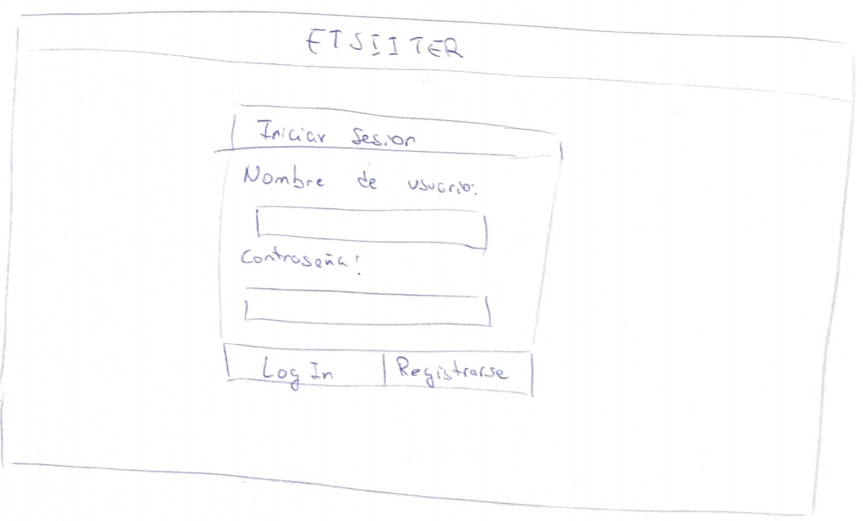 ETSIITER
Iniciar Sesion
Nombre de usuario:
Contraseña:
Log In
Registrarse